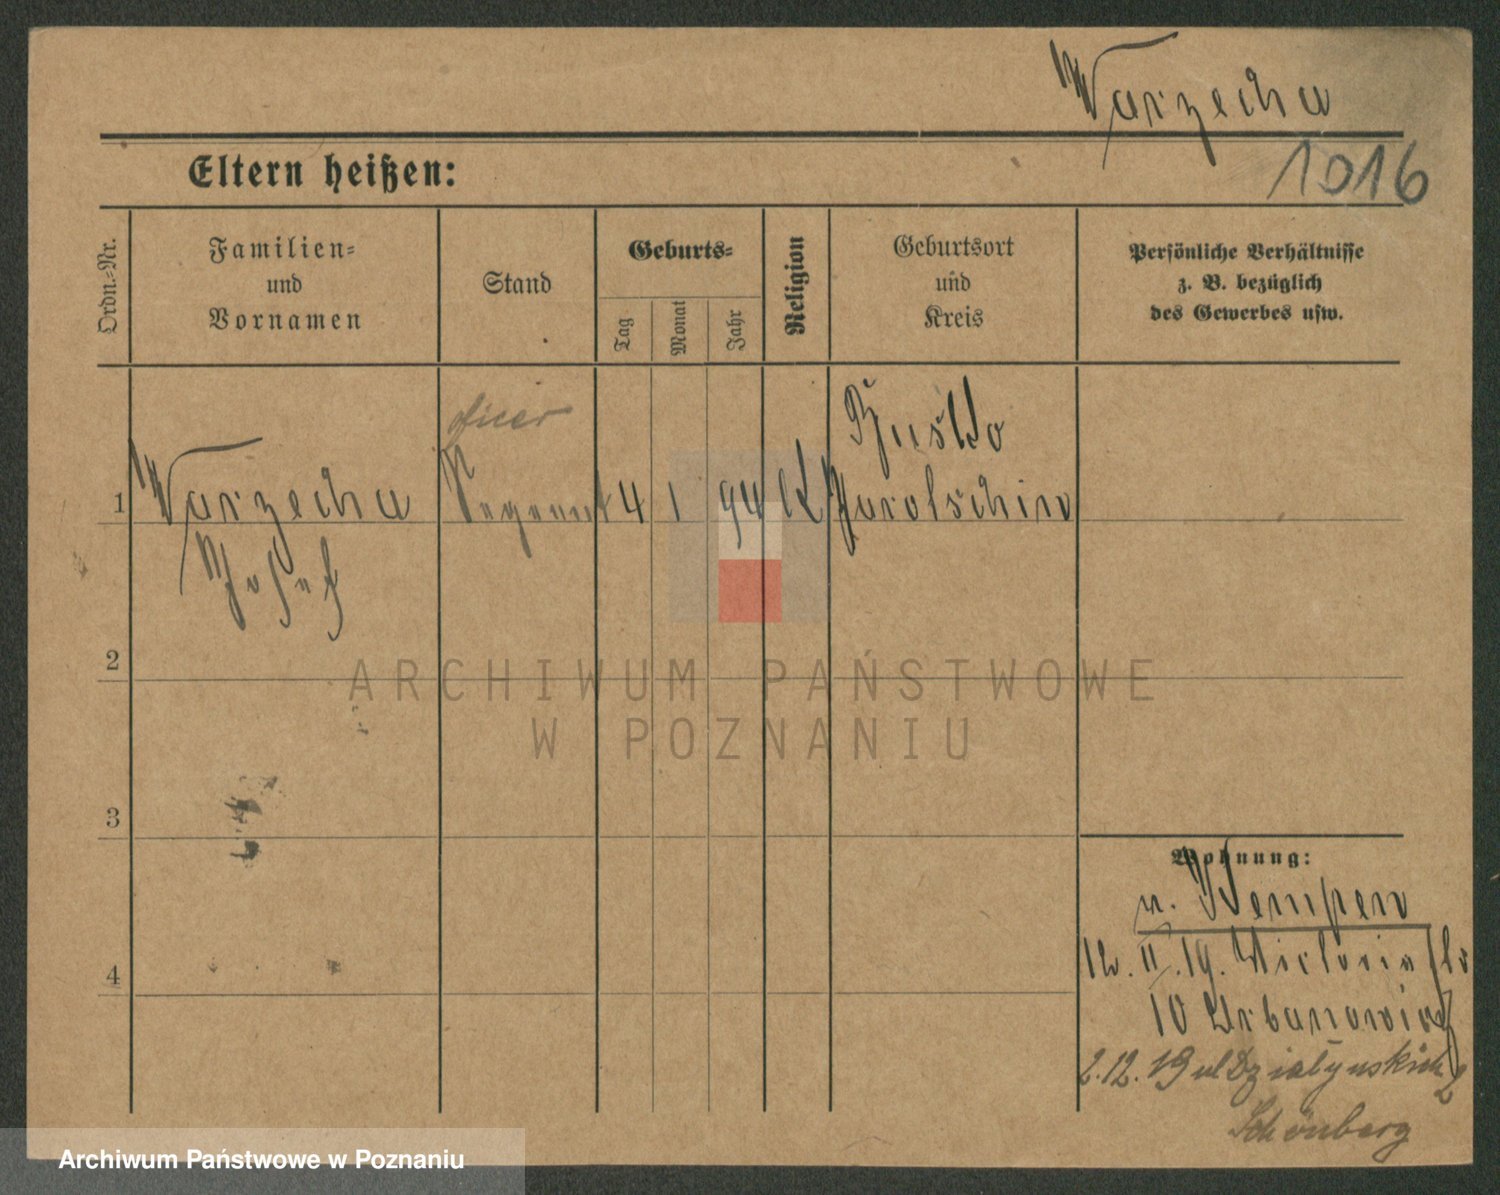 Warzecha
1016
Eltern heißen:
Ordn.=Nr.
Familien=
und
Vornamen
Stand
Geburts=
Tag
Monat
Jahr
Religion
Geburtsort
und
Kreis
Persönliche Verhältnisse
z. B. bezüglich
des Gewerbes usw.
1
Warzecha
Josef
4
1
94
Jarotschin
2
3
4
Wohnung:
v. Kempen
12. II. 19. Victoria
10 Urbanowicz
2.12. 19 ul Działyńskich 2
Schönberg
ARCHIWUM PAŃSTWOWE
W POZNANIU
Archiwum Państwowe w Poznaniu